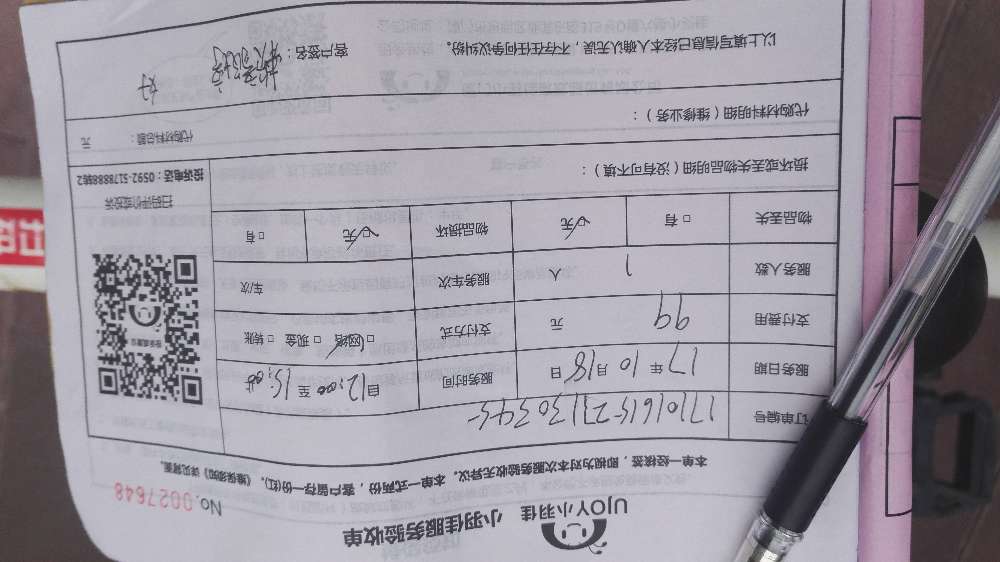 UJOY小羽佳 小羽佳服务验收单
No.0027648
本单一经核签，即视为对本次服务验收无异议。本单一式两份，客户留存一份(红)。《维保须知》详见背面。
订单编号 17101615271303345
服务日期 17年10月18日 服务时间 自12:00至15:00
支付费用 99 元 支付方式 ☑网络 □现金 □转账
服务人数 1 人 服务车次 车次
物品丢失 □有 ☑无 物品损坏 ☑无 □有
扫码评价或投诉
投诉电话：0592-5178888转2
损坏或丢失物品明细（没有可不填）：
代购材料明细（维修业务）：
代购材料总额： 元
以上填写信息已经本人确认无误，不存在任何争议纠纷。 客户签名：